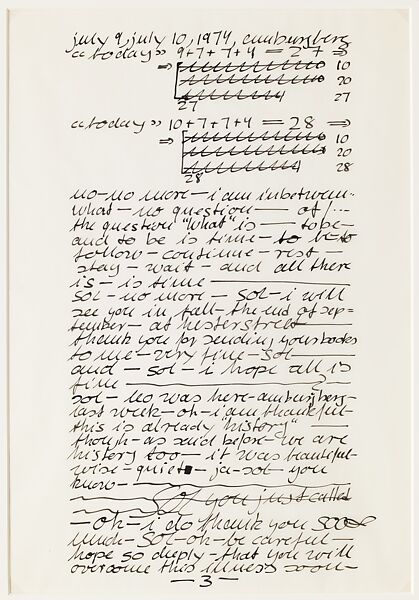 july 9, july 10, 1974, amburgberg
"today" 9+7+7+4 = 27 ⇒
⇒ 10
20
27 27
"today" 10+7+7+4 = 28 ⇒
⇒ 10
20
28 28
no-no more-i am inbetween-
what-no question- of /...
the question "what" is - to be-
and to be is time-to be to
follow-continue-rest-
stay-wait-and all there
is-is time
sol-no more-sol-i will
see you in fall-the end of sep-
tember-at hesterstreet
thank you for sending your
to me-very fine-sol
and-sol-i hope all is
fine
sol-leo was here-amburgberg-
last week-oh-i am thankful-
this is already "history"
though-as said before-we are
history too-it was beautiful-
wise-quiet-ja-sol-you
know-
sol you just called
-oh-i do thank you sooo
much-sol-oh-be careful-
hope so deeply-that you will
overcome this illness soon-
-3-